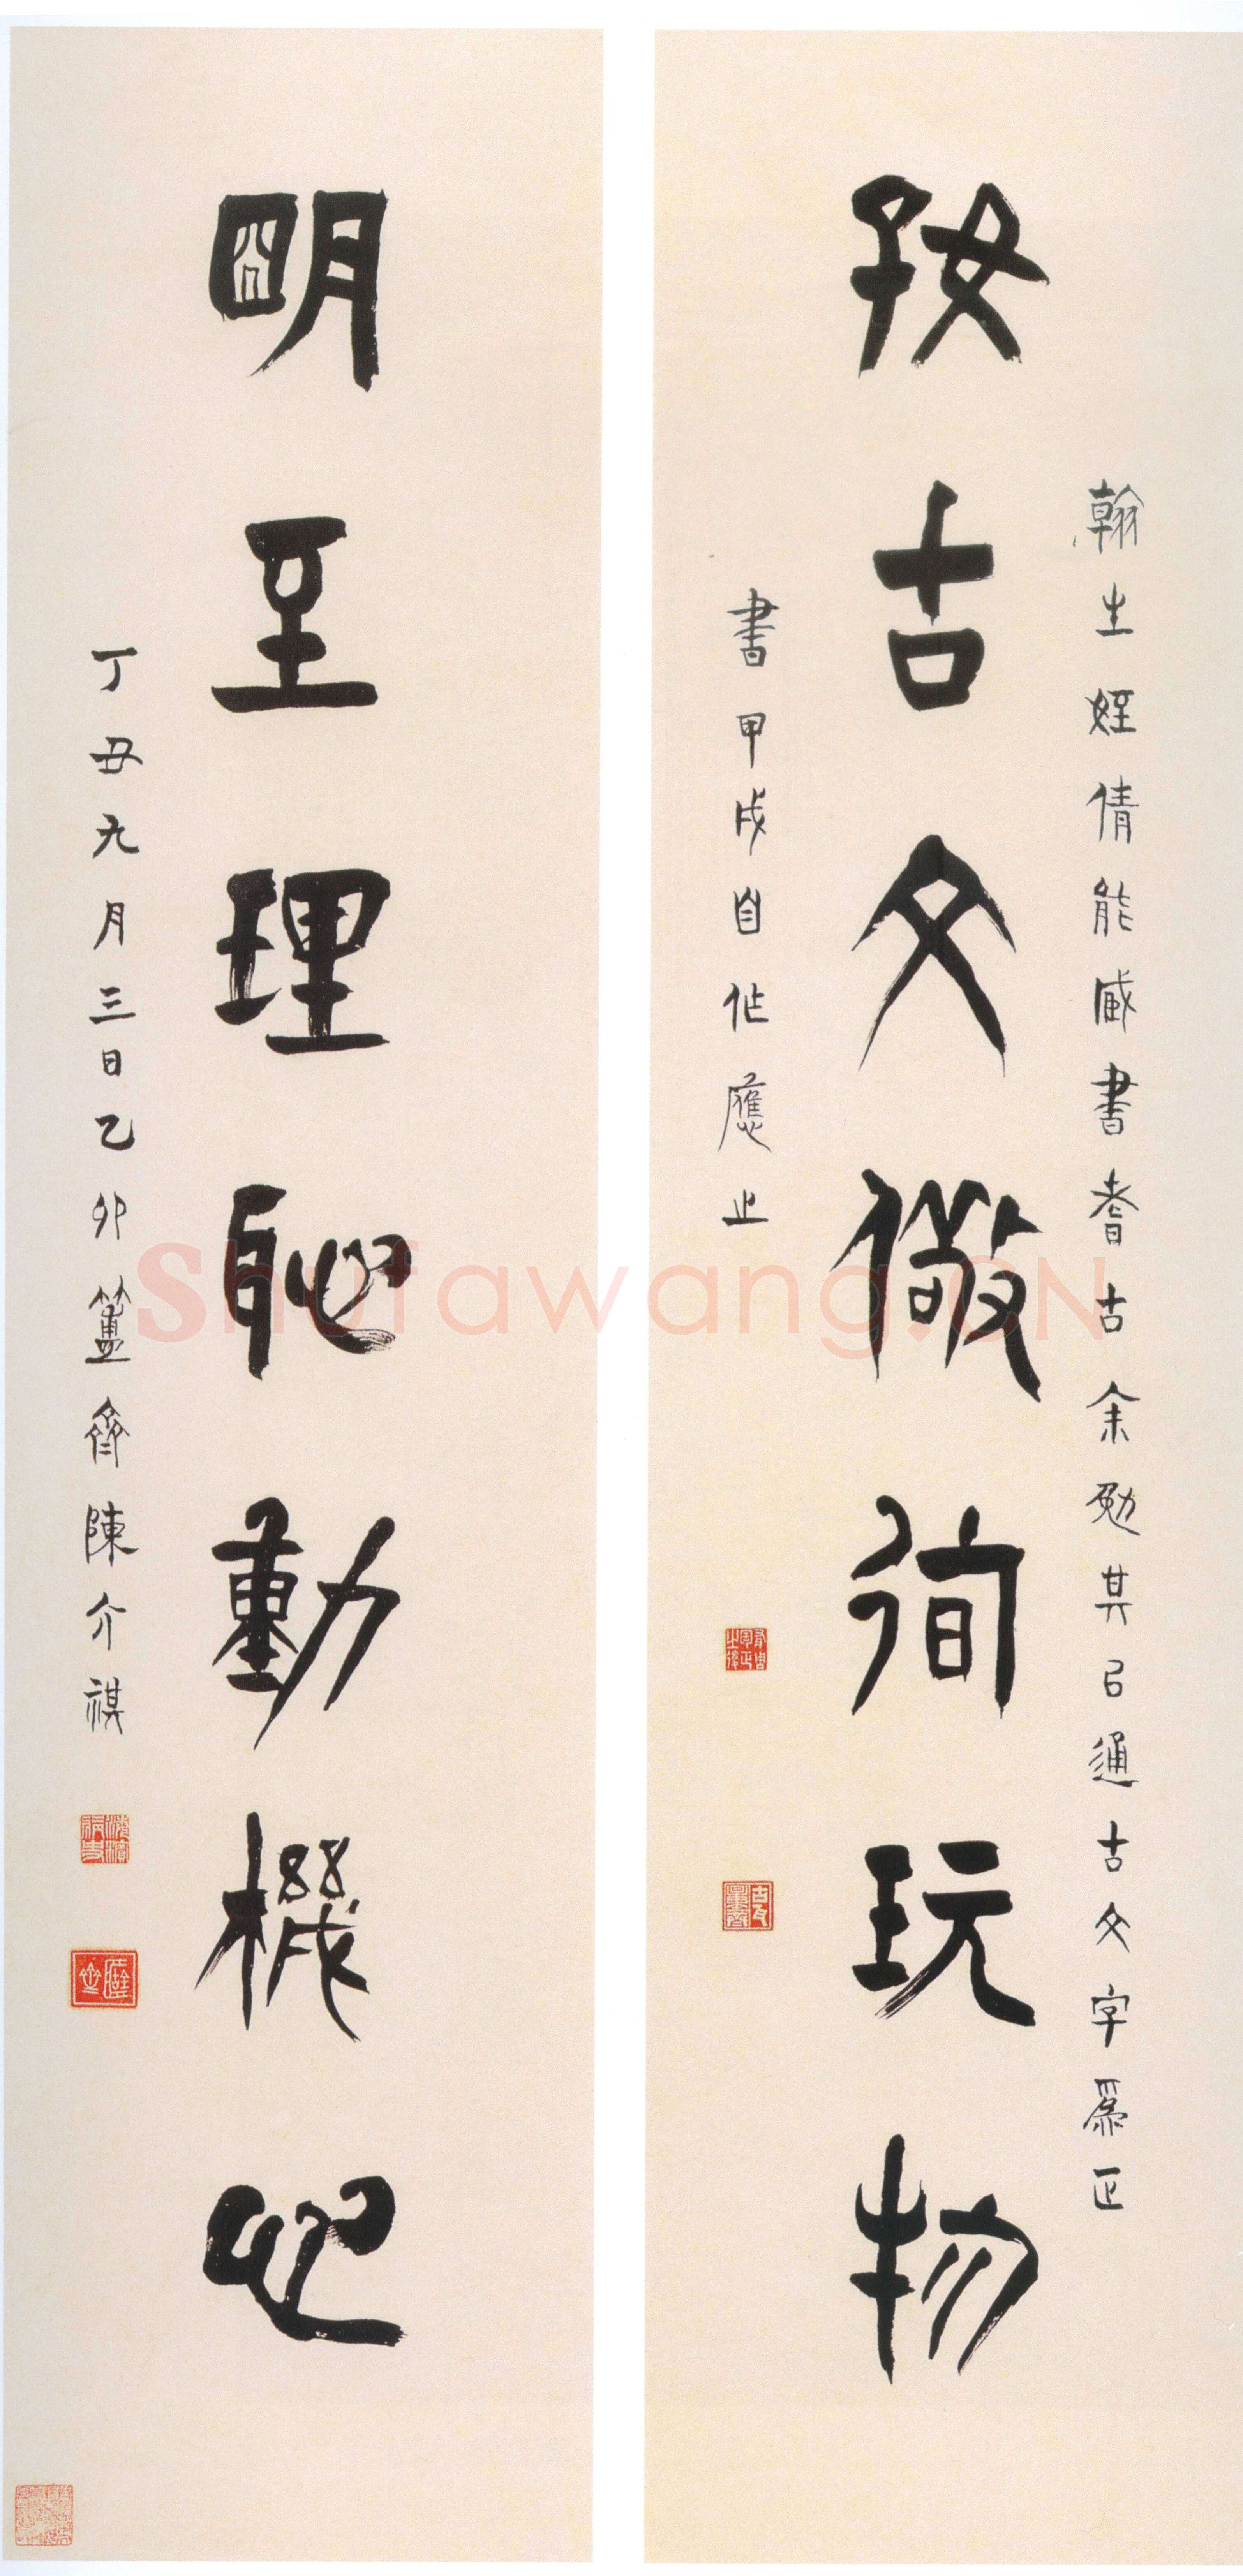 好古文儆徇玩物
翰生姪倩能藏書耆古余勉其㠯通古文字爲正
書甲戌自作應之
明至理恥動機心
丁丑九月三日乙卯簠齋陳介祺
海濱病史
Shufawang.CN